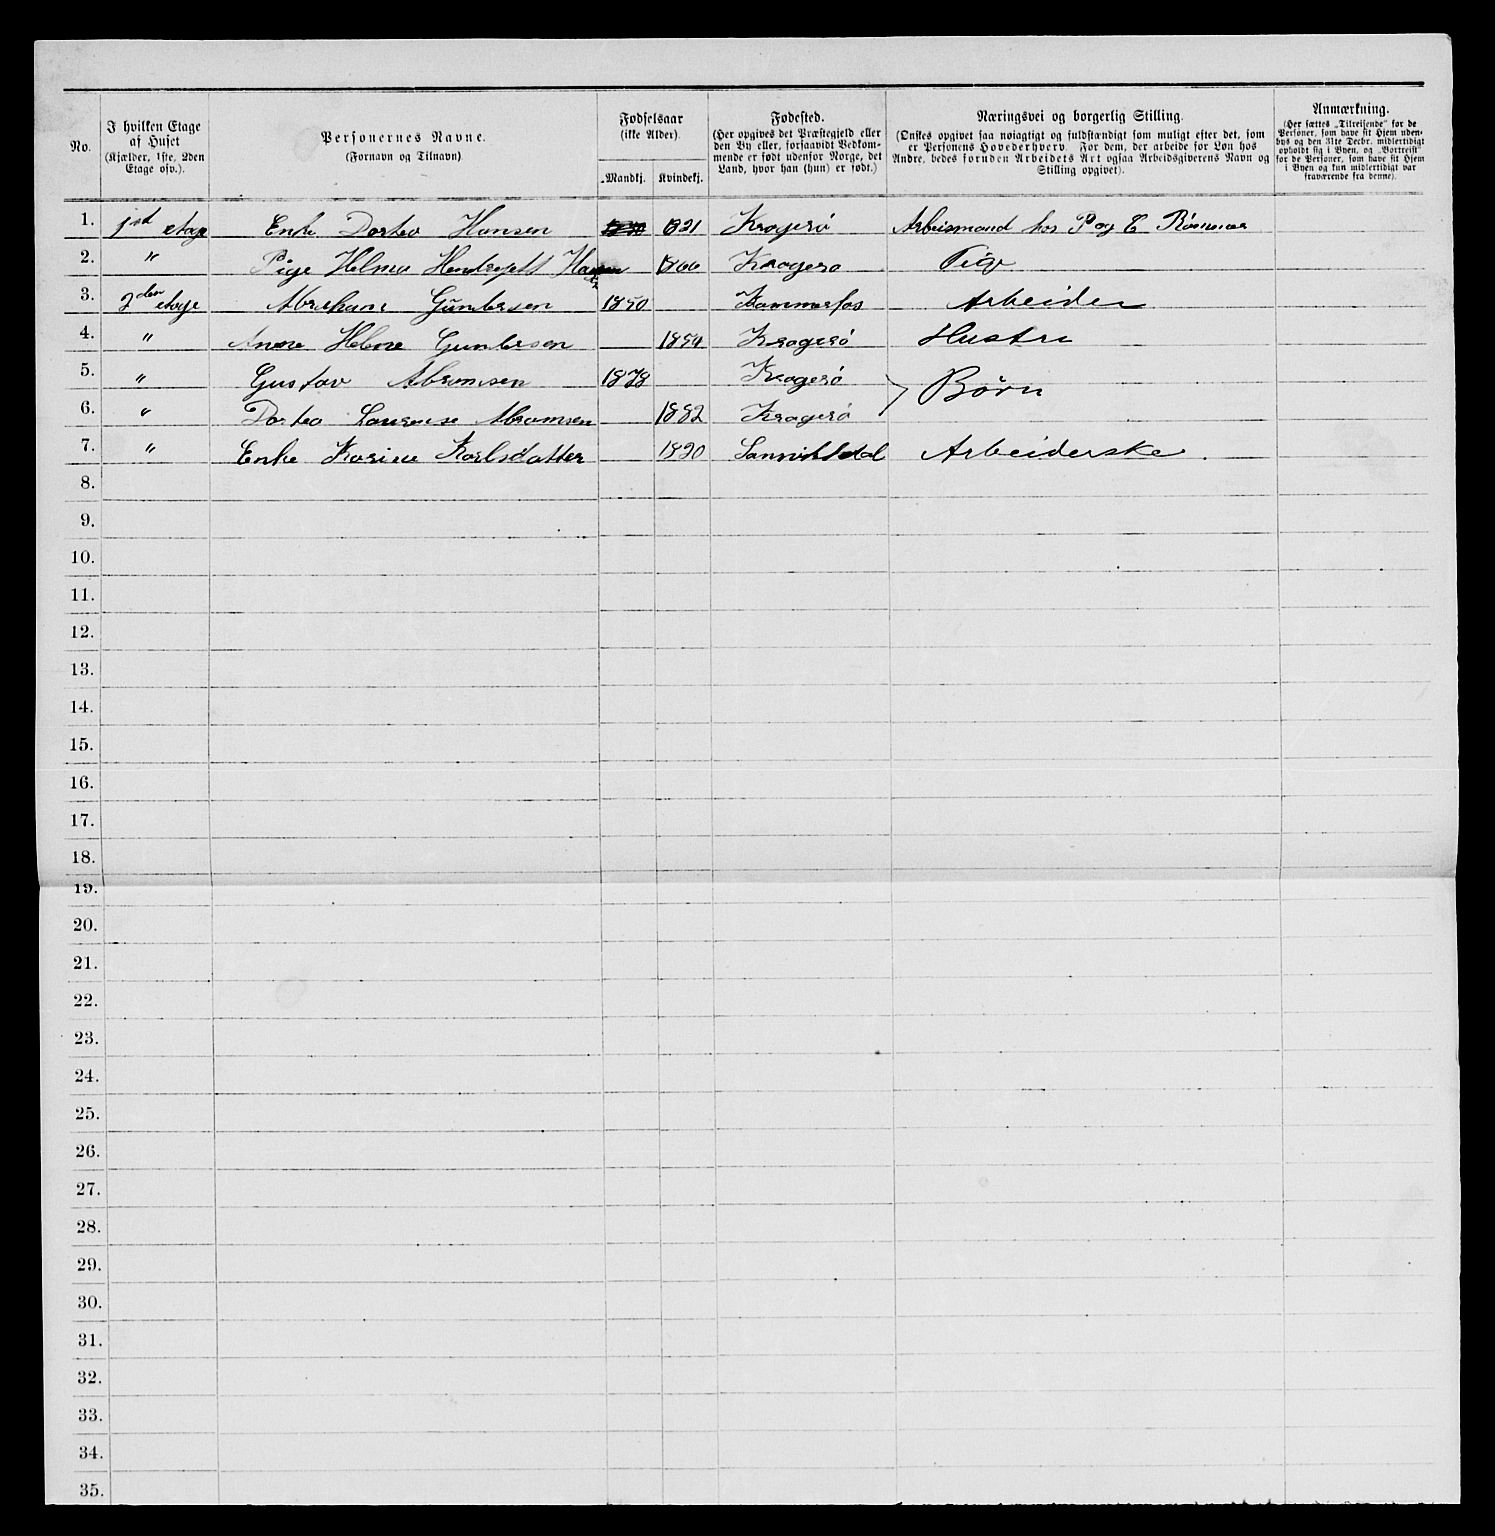 No.
I hvilken Etage
af Huset
(Kjælder, 1ste, 2den
Etage osv.).
Personernes Navne.
(Fornavn og Tilnavn).
Fødselsaar
(ikke Alder).
Mandkj.
Kvindekj.
Fødested.
(Her opgives det Præstegjeld eller
den By eller, forsaavidt Vedkom-
mende er født udenfor Norge, det
Land, hvor han (hun) er født.)
Næringsvei og borgerlig Stilling.
(Ønskes opgivet saa nøiagtigt og fuldstændigt som muligt efter det, som
er Personens Hovederhverv. For dem, der arbeide for Løn hos
Andre, bedes foruden Arbeidets Art ogsaa Arbeidsgiverens Navn og
Stilling opgivet).
Anmærkning.
(Her sættes „Tilreisende“ for de
Personer, som have sit Hjem uden-
bys og den 31te Decbr. midlertidigt
opholdt sig i Byen, og „Bortreist“
for de Personer, som have sit Hjem
i Byen og kun midlertidigt var
fraværende fra denne).
1. 1st etage Enke Dortea Hansen 1821 Kragerö Arbeismand hos P og C
2. " Pige Helma Hansen 1866 Kragero Pige
3. 2den etage Abraham Guntersen 1850 Kammerfos Arbeider
4. " Anne Helene Guntersen Kragerö Hustru
5. " Gustav Abramsen 1878 Kragerö
Börn
6. " Dortea Lourense Abramsen 1882 Kragerö
7. " Enke Karine Karlsdatter 1820 Sannikedal Arbeiderske.
8.
9.
10.
11.
12.
13.
14.
15.
16.
17.
18.
19.
20.
21.
22.
23.
24.
25.
26.
27.
28.
29.
30.
31.
32.
33.
34.
35.